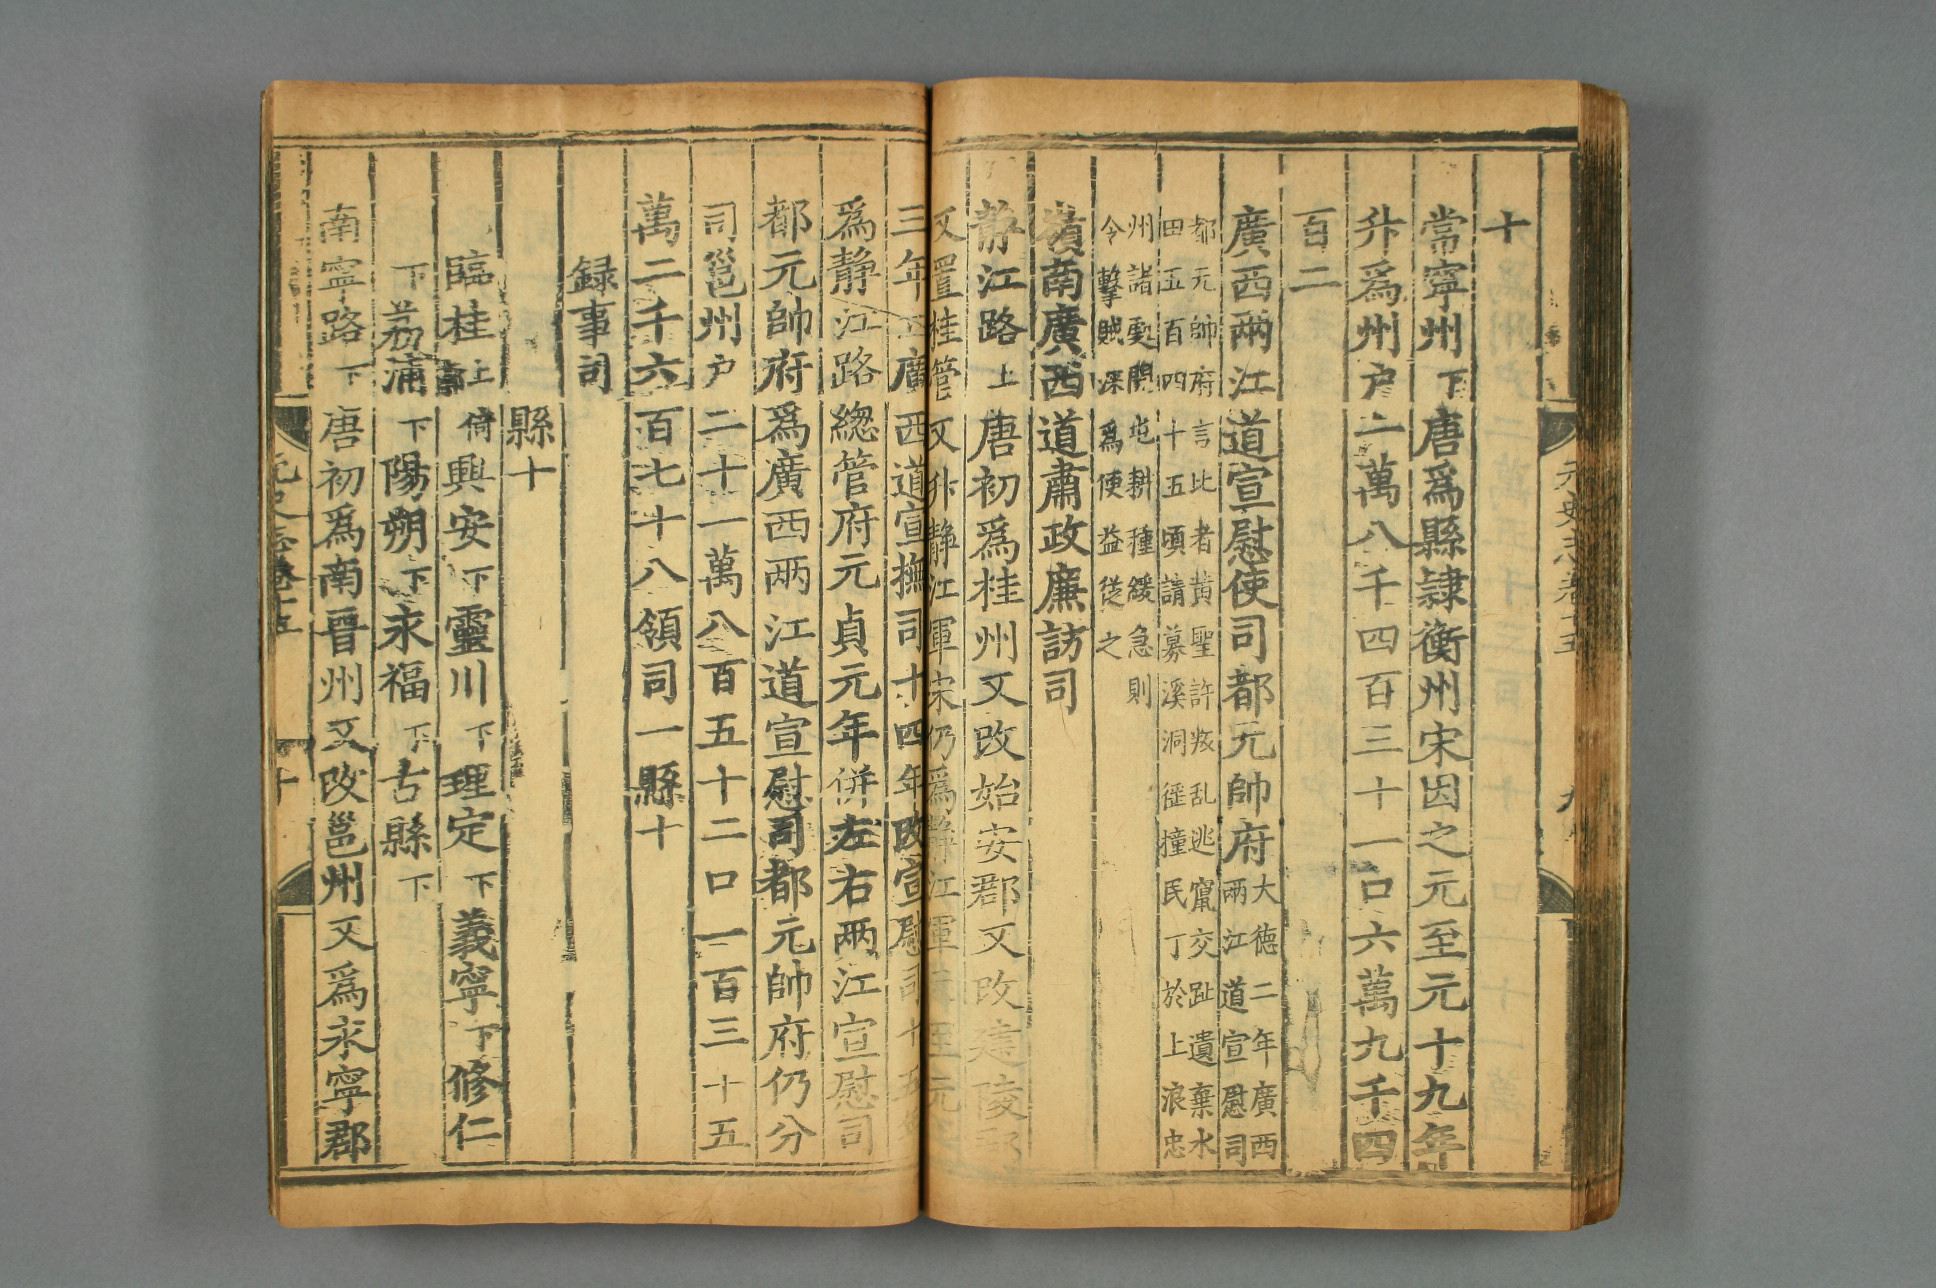 十
常寧州下唐爲縣隷衡州宋因之元至元十九年
升爲州户二萬八千四百三十一口六萬九千四
百二
廣西兩江道宣慰使司都元帥府大德二年廣西兩江道宣慰司
都元帥府言比者黄聖許叛乱逃竄交趾遺棄水
田五百四十五頃請募溪洞徭撞民丁於上浪忠
州諸處開屯耕種緩急則
令擊賊深爲便益從之
嶺南廣西道肅政廉訪司
静江路上唐初爲桂州又改始安郡又改建陵郡
又置桂管又升静江軍宋仍爲静江軍元至元
三年立廣西道宣撫司十四年改宣慰司十五年
爲静江路總管府元貞元年併左右兩江宣慰司
都元帥府爲廣西兩江道宣慰司都元帥府仍分
司邕州户二十一萬八百五十二口一百三十五
萬二千六百七十八領司一縣十
録事司
縣十
臨桂上倚興安下靈川下理定下義寧下修仁
下荔浦下陽朔下永福下古縣下
南寧路下唐初爲南晋州又改邕州又爲永寧郡
元史志卷十五
十